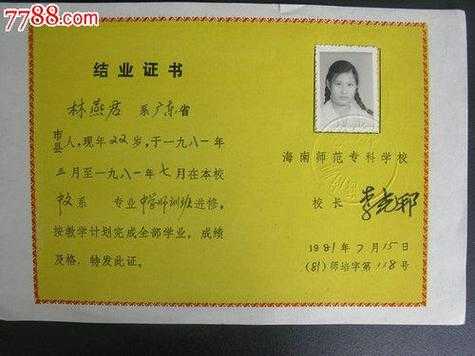 7788.com
结业证书
林燕君 系广东省
市县 人,现年22岁,于一九八一年
二月至一九八一年七月在本校
系 专业中学师训班进修,
按教学计划完成全部学业,成绩
及格,特发此证。
海南师范专科学校
校长
1981年7月15日
(81)师培字第118号